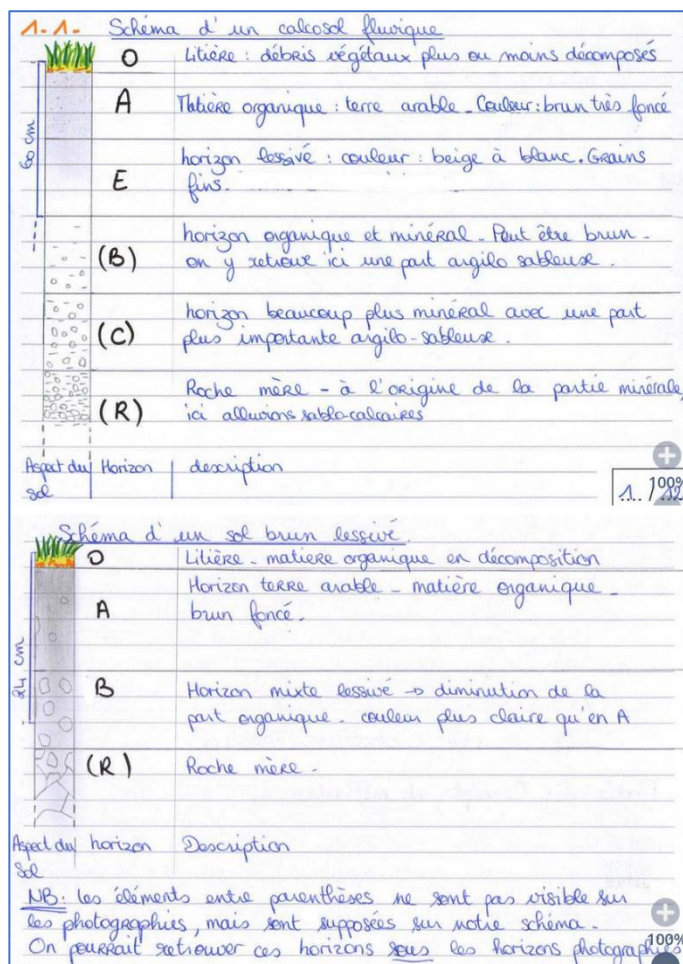 1.1. Schéma d'un calcosol fluvique
O Litière : débris végétaux plus ou moins décomposés
A Matière organique : terre arable - Couleur : brun très foncé
60 cm
E horizon lessivé : couleur : beige à blanc. Grains
fins.
(B) horizon organique et minéral - Peut être brun -
on y retrouve ici une part argilo sableuse.
(C) horizon beaucoup plus minéral avec une part
plus importante argilo-sableuse.
(R) Roche mère - à l'origine de la partie minérale,
ici alluvions sablo-calcaires
Aspect du sol | Horizon | description
1.. / 12
100%
Schéma d'un sol brun lessivé.
O Litière - matière organique en décomposition
A Horizon terre arable - matière organique -
brun foncé.
24 cm
B Horizon mixte lessivé → diminution de la
part organique - couleur plus claire qu'en A
(R) Roche mère -
Aspect du sol | horizon | Description
NB : les éléments entre parenthèses ne sont pas visible sur
les photographies, mais sont supposées sur notre schéma -
On pourrait retrouver ces horizons sous les horizons photographiés
100%